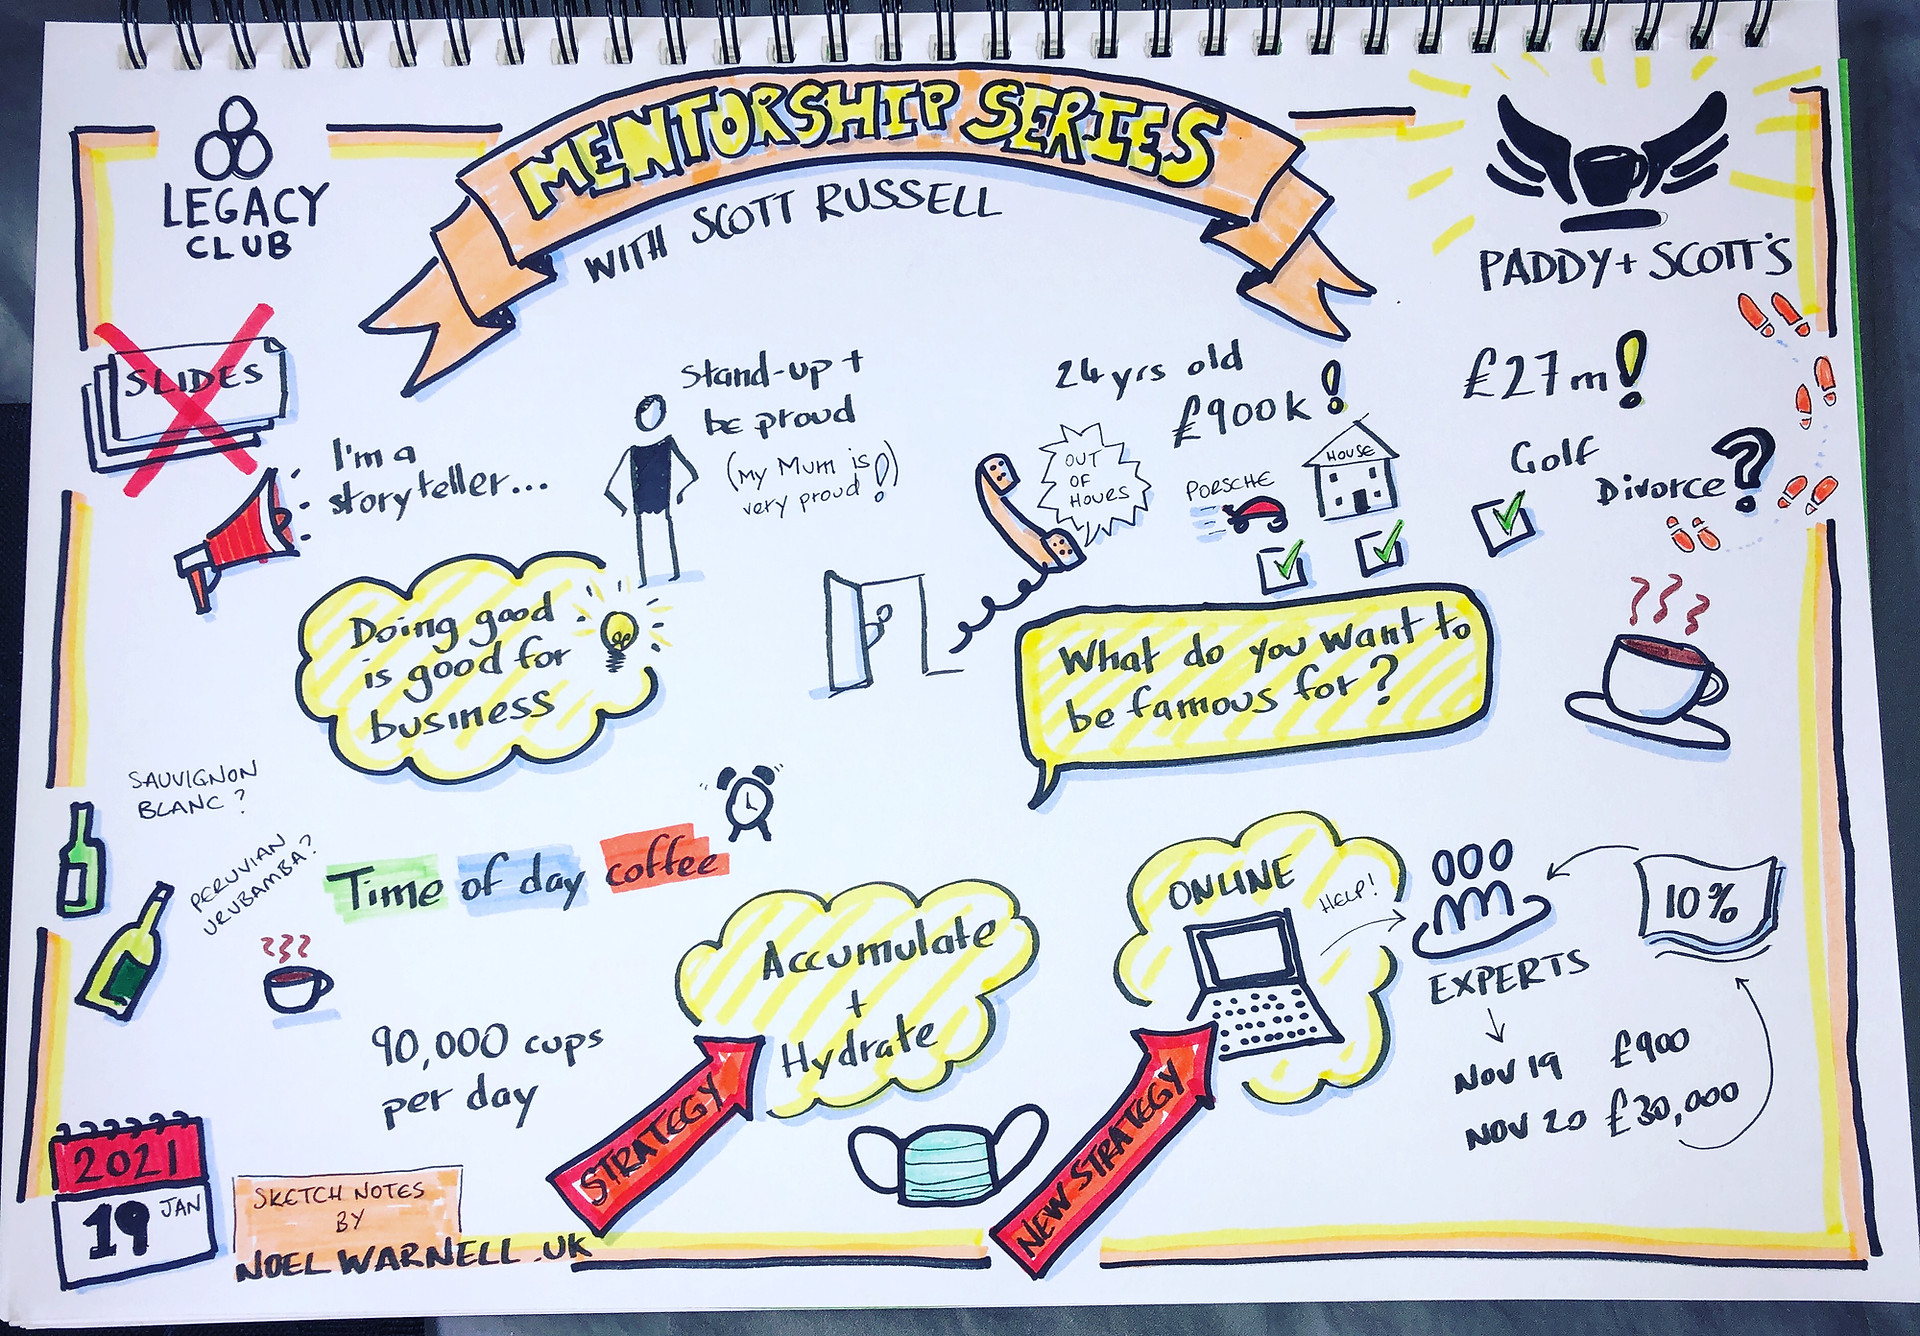 MENTORSHIP SERIES
WITH SCOTT RUSSELL
LEGACY
CLUB
PADDY + SCOTT'S
SLIDES
I'm a
storyteller...
Stand-up +
be proud
(My Mum is
very proud!)
OUT
OF
HOURS
24 yrs old
£900k!
PORSCHE
HOUSE
£27m!
Golf
Divorce?
Doing good
is good for
business
What do you want to
be famous for?
SAUVIGNON
BLANC?
PERUVIAN
URUBAMBA?
Time of day coffee
90,000 cups
per day
Accumulate
+
Hydrate
STRATEGY
ONLINE
HELP!
NEW STRATEGY
EXPERTS
10%
NOV 19 £900
NOV 20 £30,000
2021
19 JAN
SKETCH NOTES
BY
NOELWARNELL.UK